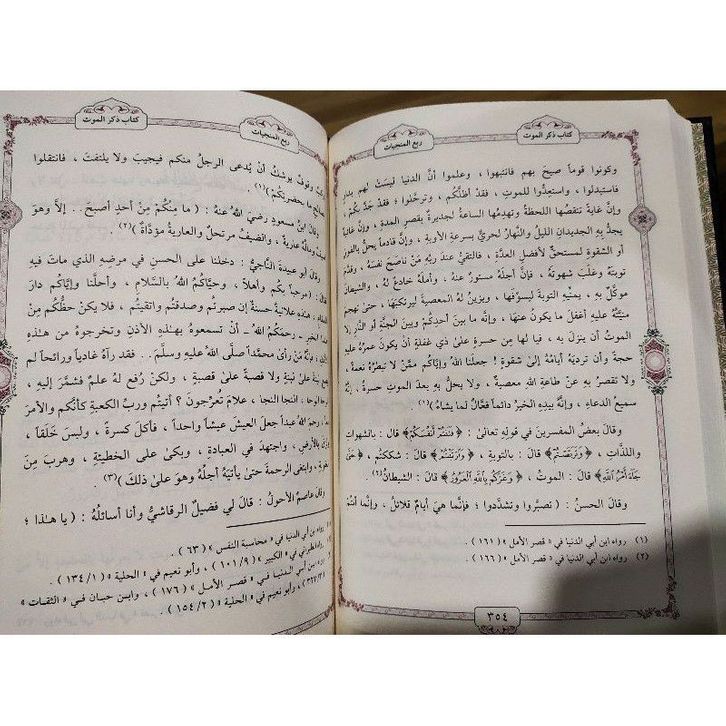 ربع المنجيات
كتاب ذكر الموت
وكونوا قوماً صيح بهم فانتبهوا ، وعلموا أنَّ الدنيا ليستْ لهم بدارٍ
فاستبدلوا ، واستعِدُّوا للموتِ ، فقدْ أظلَّكُم ، وترحَّلوا ؛ فقدْ جَدَّ بكُم ،
وإنَّ غايةً تنقصُها اللحظةُ وتهدِمُها الساعةُ لجديرةٌ بقِصرِ المدةِ ، وإنَّ غائباً
يجدُّ بهِ الجديدانِ الليلُ والنهارُ لحريٌّ بسرعةِ الأوبةِ ، وإنَّ قادماً يحلُّ بالفوزِ
أو الشقوةِ لمستحقٌّ لأفضلِ العدَّةِ ، فالتقيُّ عندَ ربِّهِ مَنْ ناصَحَ نفسَهُ ، وقدَّمَ
توبتَهُ وغلَبَ شهوتَهُ ، فإنَّ أجلَهُ مستورٌ عنهُ ، وأملَهُ خادعٌ لهُ ، والشيطانُ
موكَّلٌ بهِ ، يمنِّيهِ التوبةَ ليسوِّفَها ، ويزينُ لهُ المعصيةَ ليرتكبَها ، حتى تهجمَ
منيَّتُهُ عليهِ أغفلَ ما يكونُ عنها ، وإنَّهُ ما بينَ أحدِكُم وبينَ الجنَّةِ أوِ النارِ إلا
الموتُ أنْ ينزلَ بهِ ، فيا لها مِنْ حسرةٍ على ذي غفلةٍ أنْ يكونَ عمرُهُ عليهِ
حجةً وأنْ ترديَهُ أيامُهُ إلى شقوةٍ ! جعلَنا اللهُ وإيَّاكُم ممَّنْ لا تبطرُهُ نعمةٌ ،
ولا تقصرُ بهِ عنْ طاعةِ اللهِ معصيةٌ ، ولا يحلُّ بهِ بعدَ الموتِ حسرةٌ ، إنَّهُ
سميعُ الدعاءِ ، وإنَّهُ بيدِهِ الخيرُ دائماً فعَّالٌ لما يشاءُ)(١) .
وقالَ بعضُ المفسرينَ في قولِهِ تعالىٰ : ﴿ فَتَنتُمْ أَنفُسَكُمْ ﴾ قالَ : بالشهواتِ
واللذَّاتِ ، ﴿ وَتَرَبَّصْتُمْ ﴾ قالَ : بالتوبةِ ، ﴿ وَارْتَبْتُمْ ﴾ قالَ : شككتُم ، ﴿ حَتَّىٰ
جَآءَ أَمْرُ اللَّهِ ﴾ قالَ : الموتُ ، ﴿ وَغَرَّكُم بِاللَّهِ الْغَرُورُ ﴾ قالَ : الشيطانُ(٢)
وقالَ الحسنُ : ( تصبَّروا وتشدَّدوا ؛ فإنَّما هيَ أيامٌ قلائلُ ، وإنَّما أنتُم
(١) رواه ابن أبي الدنيا في « قصر الأمل » ( ١٦١ ) .
(٢) رواه ابن أبي الدنيا في « قصر الأمل » ( ١٦٦ ) .
٣٥٤
ربع المنجيات
كتاب ذكر الموت
وقوفٌ يوشكُ أنْ يُدعى الرجلُ منكم فيجيبَ ولا يلتفتَ ، فانتقلوا
بصالحِ ما بحضرتِكُم )(١) .
وقالَ ابنُ مسعودٍ رضيَ اللهُ عنهُ : ( ما مِنْكُم مِنْ أحدٍ أصبحَ .. إلا وهوَ
ضيفٌ ومالُهُ عاريةٌ ، والضيفُ مرتحلٌ والعاريةُ مؤدَّاةٌ )(٢) .
وقالَ أبو عبيدةَ الناجيُّ : دخلنا على الحسنِ في مرضِهِ الذي ماتَ فيهِ
فقالَ : ( مرحباً بكُم وأهلاً ، وحيَّاكُمُ اللهُ بالسَّلامِ ، وأحلَّنا وإيَّاكُم دارَ
هـٰذهِ علانيةٌ حسنةٌ إنْ صبرتُم وصدقتُم واتقيتُم ، فلا يكنْ حظُّكُم مِنْ
هـٰذا الخبرِ ـ رحمَكُمُ اللهُ ـ أنْ تسمعوهُ بهـٰذهِ الأذنِ وتخرجوهُ مِنْ هـٰذهِ
فإنَّهُ مَنْ رأى محمَّداً صلَّى اللهُ عليهِ وسلَّمَ .. فقد رآهُ غادياً ورائحاً لمْ
يضعْ لبنةً على لبنةٍ ولا قصبةً على قصبةٍ ، ولكنْ رُفعَ لهُ علمٌ فشمَّرَ إليهِ ،
الوحا الوحا ، النجا النجا ، علامَ تعرِّجونَ ؟ أتيتُم وربِّ الكعبةِ كأنَّكم والأمرَ
رحمَ اللهُ عبداً جعلَ العيشَ عيشاً واحداً ، فأكلَ كسرةً ، ولبسَ خَلَقاً ،
بالأرضِ ، واجتهدَ في العبادةِ ، وبكىٰ على الخطيئةِ ، وهربَ مِنَ
وابتغى الرحمةَ حتىٰ يأتيَهُ أجلُهُ وهوَ علىٰ ذلكَ )(٣) .
وقالَ عاصمٌ الأحولُ : قالَ لي فضيلٌ الرقاشيُّ وأنا أسائلُهُ : ( يا هـٰذا ؛
رواه ابن أبي الدنيا في « محاسبة النفس » ( ٦٣ ) .
رواه الطبراني في « الكبير » ( ١٠١/٩ ) ، وأبو نعيم في « الحلية » ( ١٣٤/١ ) .
رواه ابن أبي الدنيا في « قصر الأمل » ( ١٧٦ ) ، وابن حبان في « الثقات »
، وأبو نعيم في « الحلية » ( ١٥٤/٢ ) .